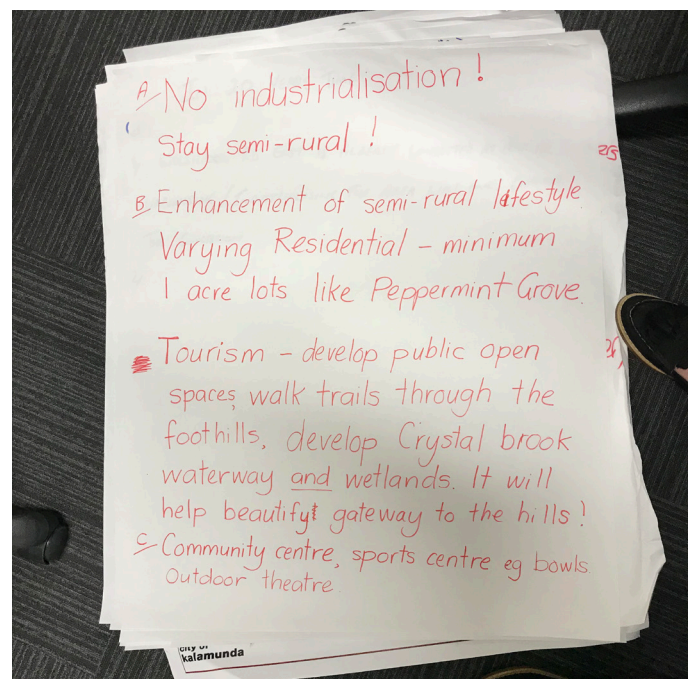 A No industrialisation!
Stay semi-rural!
B Enhancement of semi-rural lifestyle
Varying Residential - minimum
1 acre lots like Peppermint Grove.
Tourism - develop public open
spaces, walk trails through the
foothills, develop Crystal brook
waterway and wetlands. It will
help beautify gateway to the hills!
C Community centre, sports centre eg bowls
Outdoor theatre
city of
kalamunda